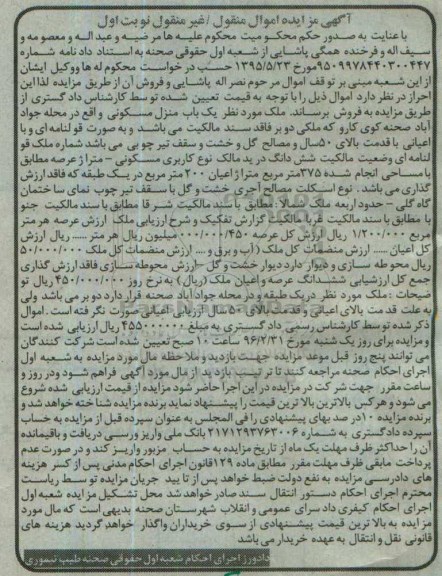 آگهی مزایده اموال منقول /غیر منقول نوبت اول
با عنایت به صدور حکم محکومیت محکوم علیه ها مرضیه و عبداله و معصومه و
سیف اله و فرخنده همگی پاشایی از شعبه اول حقوقی صحنه به استناد دادنامه شماره
۹۵۰۹۹۷۸۴۴۰۳۰۰۴۴۷ مورخ ۱۳۹۵/۵/۲۳ حسب درخواست محکوم له ها ووکیل ایشان
از این شعبه مبنی بر توقف اموال مرحوم نصراله پاشایی و فروش آن از طریق مزایده لذا این
احراز در نظر دارد اموال ذیل را با توجه به قیمت تعیین شده توسط کارشناس دادگستری از
طریق مزایده به فروش برساند. ملک مورد نظر یک باب منزل مسکونی واقع در محله جواد
آباد صحنه کوی کارو که ملکی دو بر فاقد سند مالکیت می باشد و به صورت قولنامه ای و با
اعیانی با قدمت بالای ۵۰سال و مصالح گل و خشت و سقف تیر چوبی می باشد شماره ملک قو
لنامه ای وضعیت مالکیت شش دانگ در ید مالک نوع کاربری مسکونی – متراژ عرصه مطابق
با مساحی انجام شده ۳۷۵متر مربع متراژ اعیان ۲۰۰ متر مربع در یک طبقه که فاقد ارزش
گذاری می باشد . نوع اسکلت مصالح آجری خشت و گل با سقف تیر چوب نمای ساختمان
گاه گلی – حدود اربعه ملک شمالا مطابق با سند مالکیت شرقا مطابق با سند مالکیت جنو
با مطابق با سند مالکیت غربا مالکیت گزارش تفکیک و شرح ارزیابی ملک ارزش عرصه هر متر
مربع ۱/۲۰۰/۰۰۰ ریال ارزش کل عرصه ۴۵۰/۰۰۰/۰۰۰میلیون ریال هر متر ..... ریال ارزش
کل اعیان ..... ارزش منضمات کل ملک (آب و برق و .... ارزش منضمات کل ملک ۵۰/۰۰۰/۰۰۰
ریال محوطه سازی و دیوار دارد دیوار خشت و گل –ارزش محوطه سازی فاقد ارزش گذاری
جمع کل ارزشیابی ششدانگ عرصه و اعیان ملک (ریال) به نرخ روز ۴۵۰/۰۰۰/۰۰۰ ریال تو
ضیحات : ملک مورد نظر در یک طبقه و در محله جواد آباد صحنه قرار دارد دو بر می باشد ولی
به علت قدمت بالای اعیانی و قدمت بالای ۵۰سال ارزیابی اعیانی صورت نگرفته است. اموال
ذکر شده توسط کارشناس رسمی دادگستری به مبلغ ۴۵۵۰۰۰۰۰۰ ریال ارزیابی شده است
و مزایده برای روز یک شنبه مورخ ۹۶/۲/۳۱ ساعت ۱۰ صبح تعیین شده است شرکت کنندگان
می توانند پنج روز قبل موعد مزایده جهت بازدید و ملاحظه مال مورد مزایده به شعبه اول
اجرای احکام صحنه مراجعه کنند تا ترتیب بازدید از مال مورد آگهی فراهم شود ودر روز و
ساعت مقرر جهت شرکت در مزایده در این اجرا حاضر شود مزایده از قیمت ارزیابی شده شروع
می شود و هر کس بالاترین بالاترین قیمت را پیشنهاد نماید برنده مزایده شناخته خواهد شد و
برنده مزایده ۱۰در صد بهای پیشنهادی را فی المجلس به عنوان سپرده قبل از مزایده به حساب
سپرده دادگستری به شماره ۲۱۷۱۲۹۳۷۶۳۰۰۶ بانک ملی واریز ورسمی دریافت و باقیمانده
آن را حداکثر ظرف مهلت یک ماه از تاریخ مزایده به حساب مزبور واریز کند و در صورت عدم
پرداخت مابقی ظرف مهلت مقرر مطابق ماده ۱۲۹قانون اجرای احکام مدنی پس از کسر هزینه
های دادرسی مزایده به نفع دولت ضبط خواهد پس از تایید جریان مزایده توسط ریاست
محترم اجرای احکام دستور انتقال سند صادر خواهد شد محل تشکیل مزایده شعبه اول
اجرای احکام کیفری دادسرای عمومی و انقلاب شهرستان صحنه بدیهی است که مال مورد
مزایده به بالاترین قیمت پیشنهادی از سوی خریداران واگذار خواهد گردید هزینه های
قانونی نقل و انتقال به عهده خریدار می باشد
دادورز اجرای احکام شعبه اول حقوقی صحنه طیب تیموری